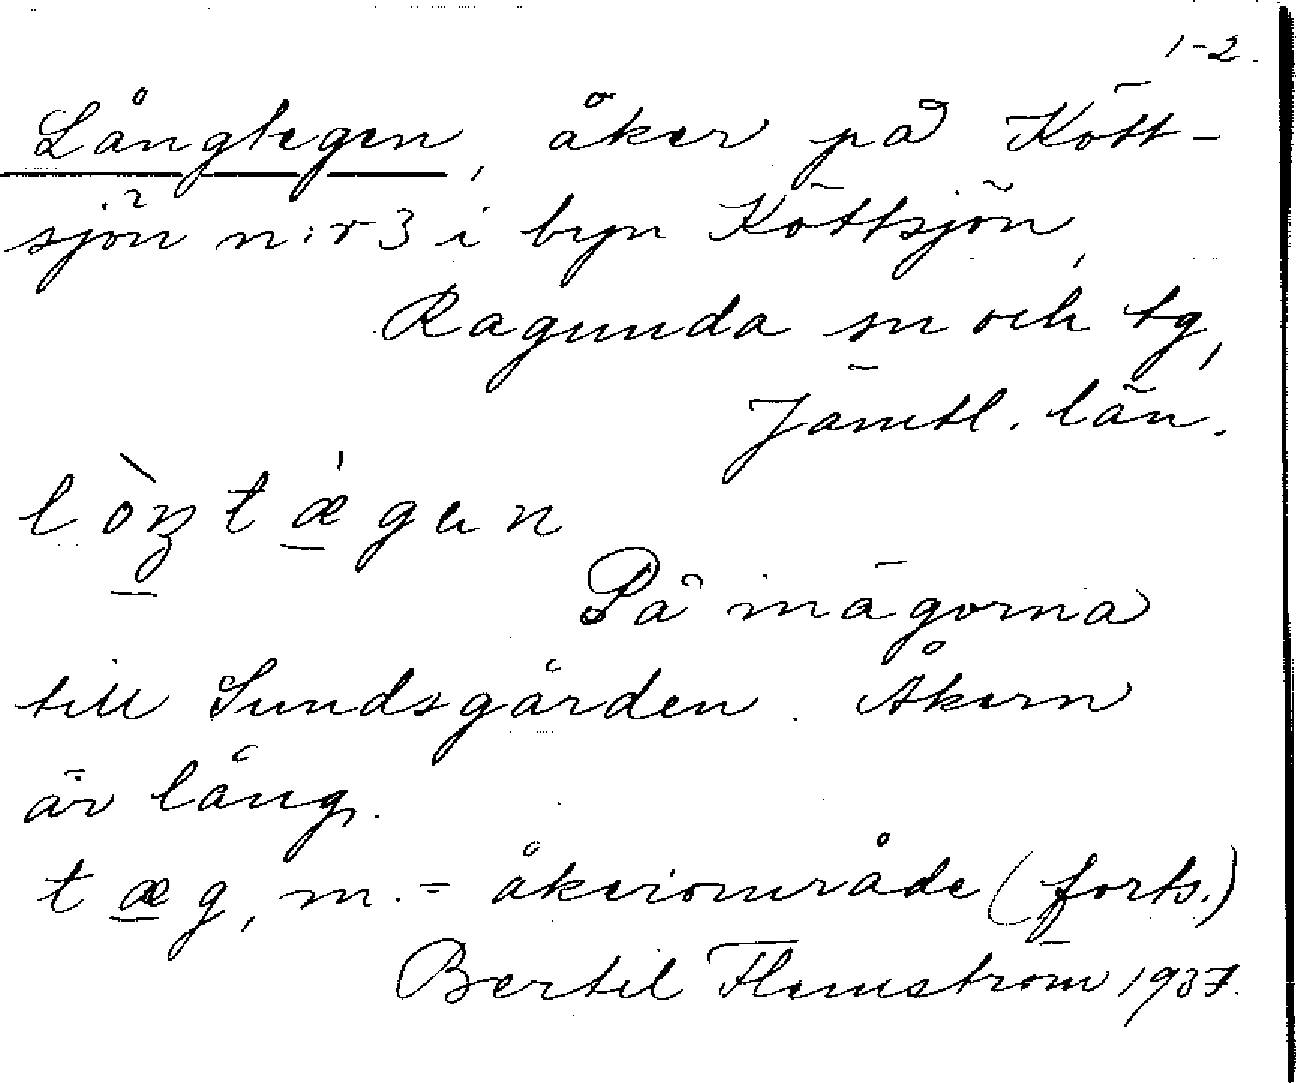 1-2.
Långtegen, åker på Kött-
sjön n:r 3 i byn Köttsjön,
Ragunda sn och tg,
Jämtl. län.
lòŋtæ̀gen
På inägorna
till Sundsgården. Åkern
är lång.
tæg, m. = åkerområde (forts.)
Bertil Flemström 1937.